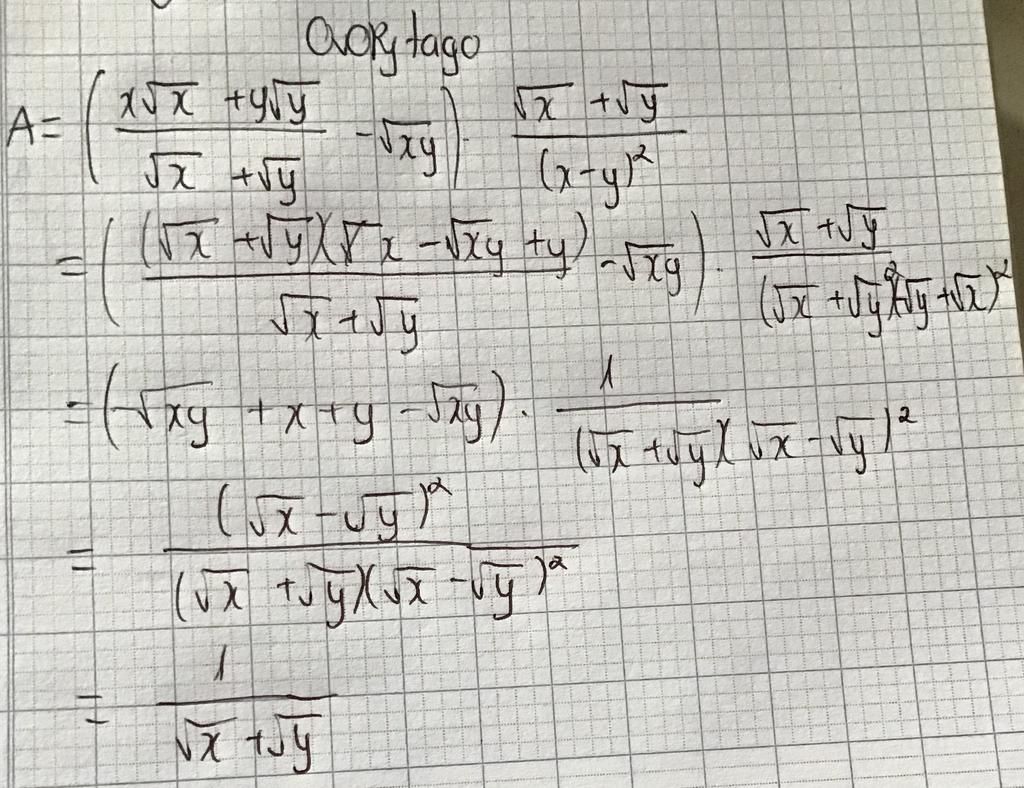 QvoRytago
A = ( (x√x + y√y) / (√x + √y) - √xy ) . (√x + √y) / (x-y)²
= ( (√x + √y)(√x - √xy + y) / (√x + √y) - √xy ) . (√x + √y) / (√x + √y)²(√y + √x)²
= (-√xy + x + y - √xy) . 1 / (√x + √y)(√x - √y)²
= (√x - √y)² / (√x + √y)(√x - √y)²
= 1 / (√x + √y)